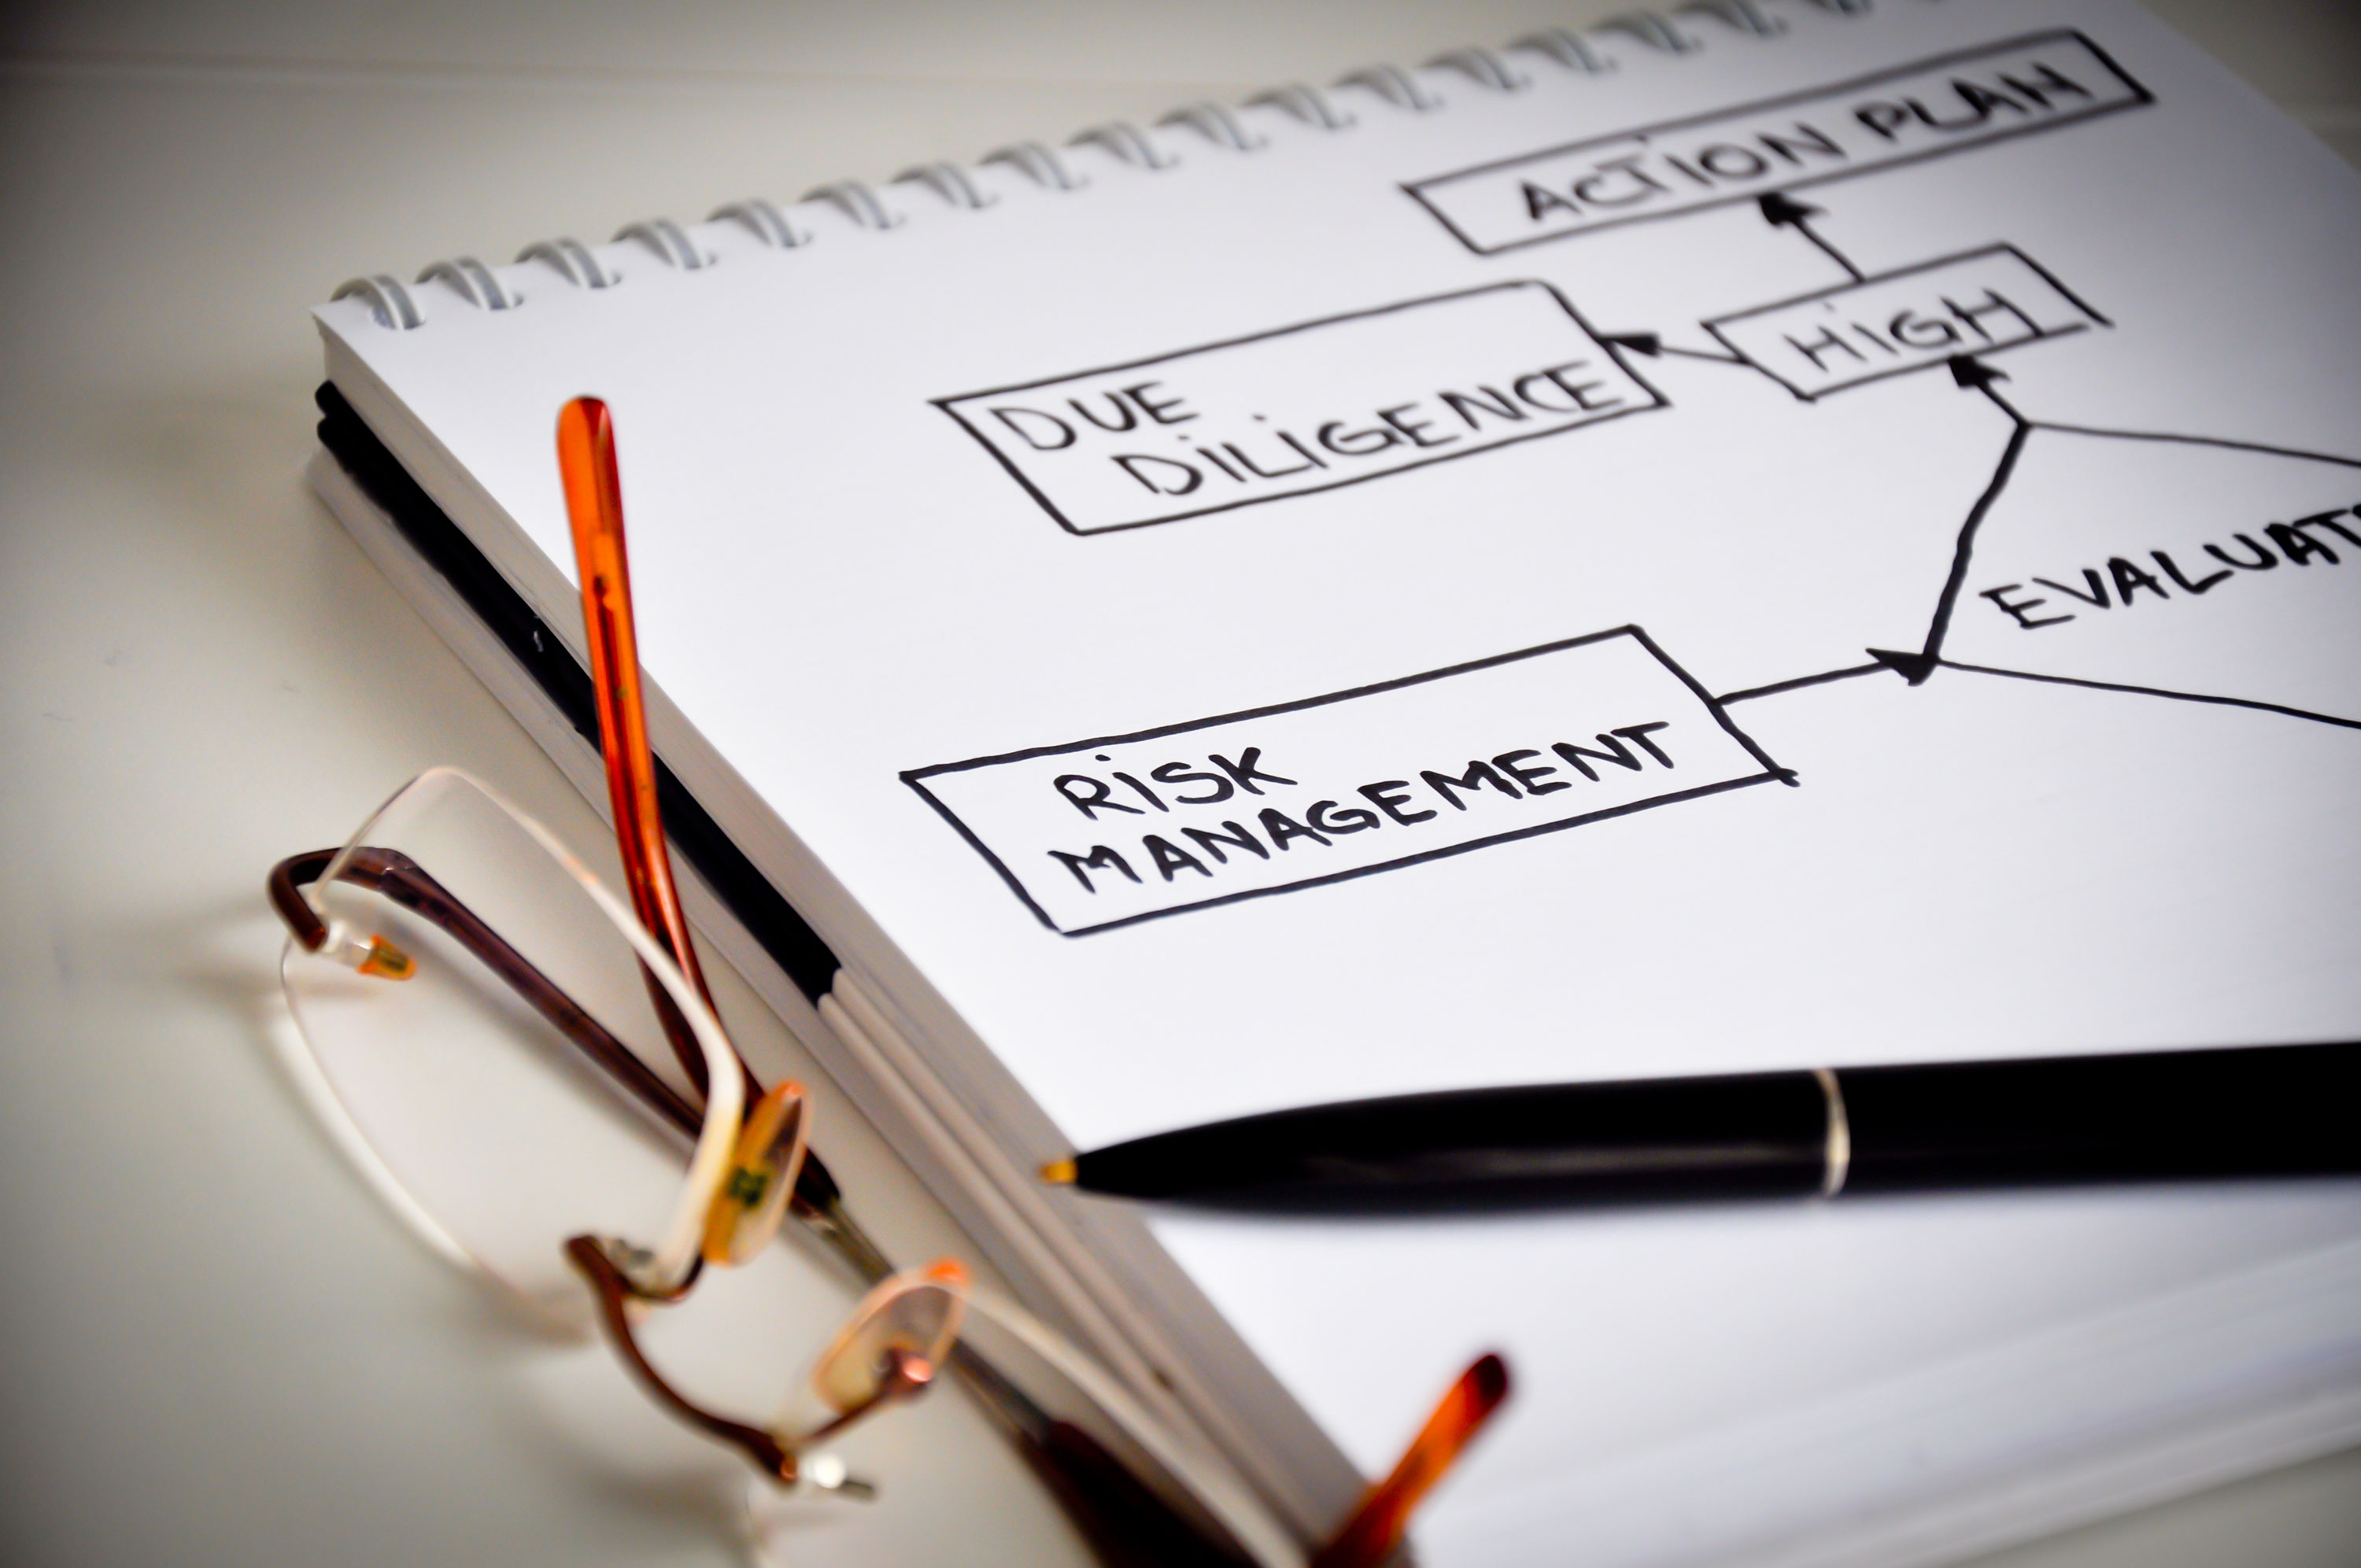 ACTION PLAN
HiGH
DUE
DiLiGENCE
EVALUAT
RiSK
MANAGEMENT